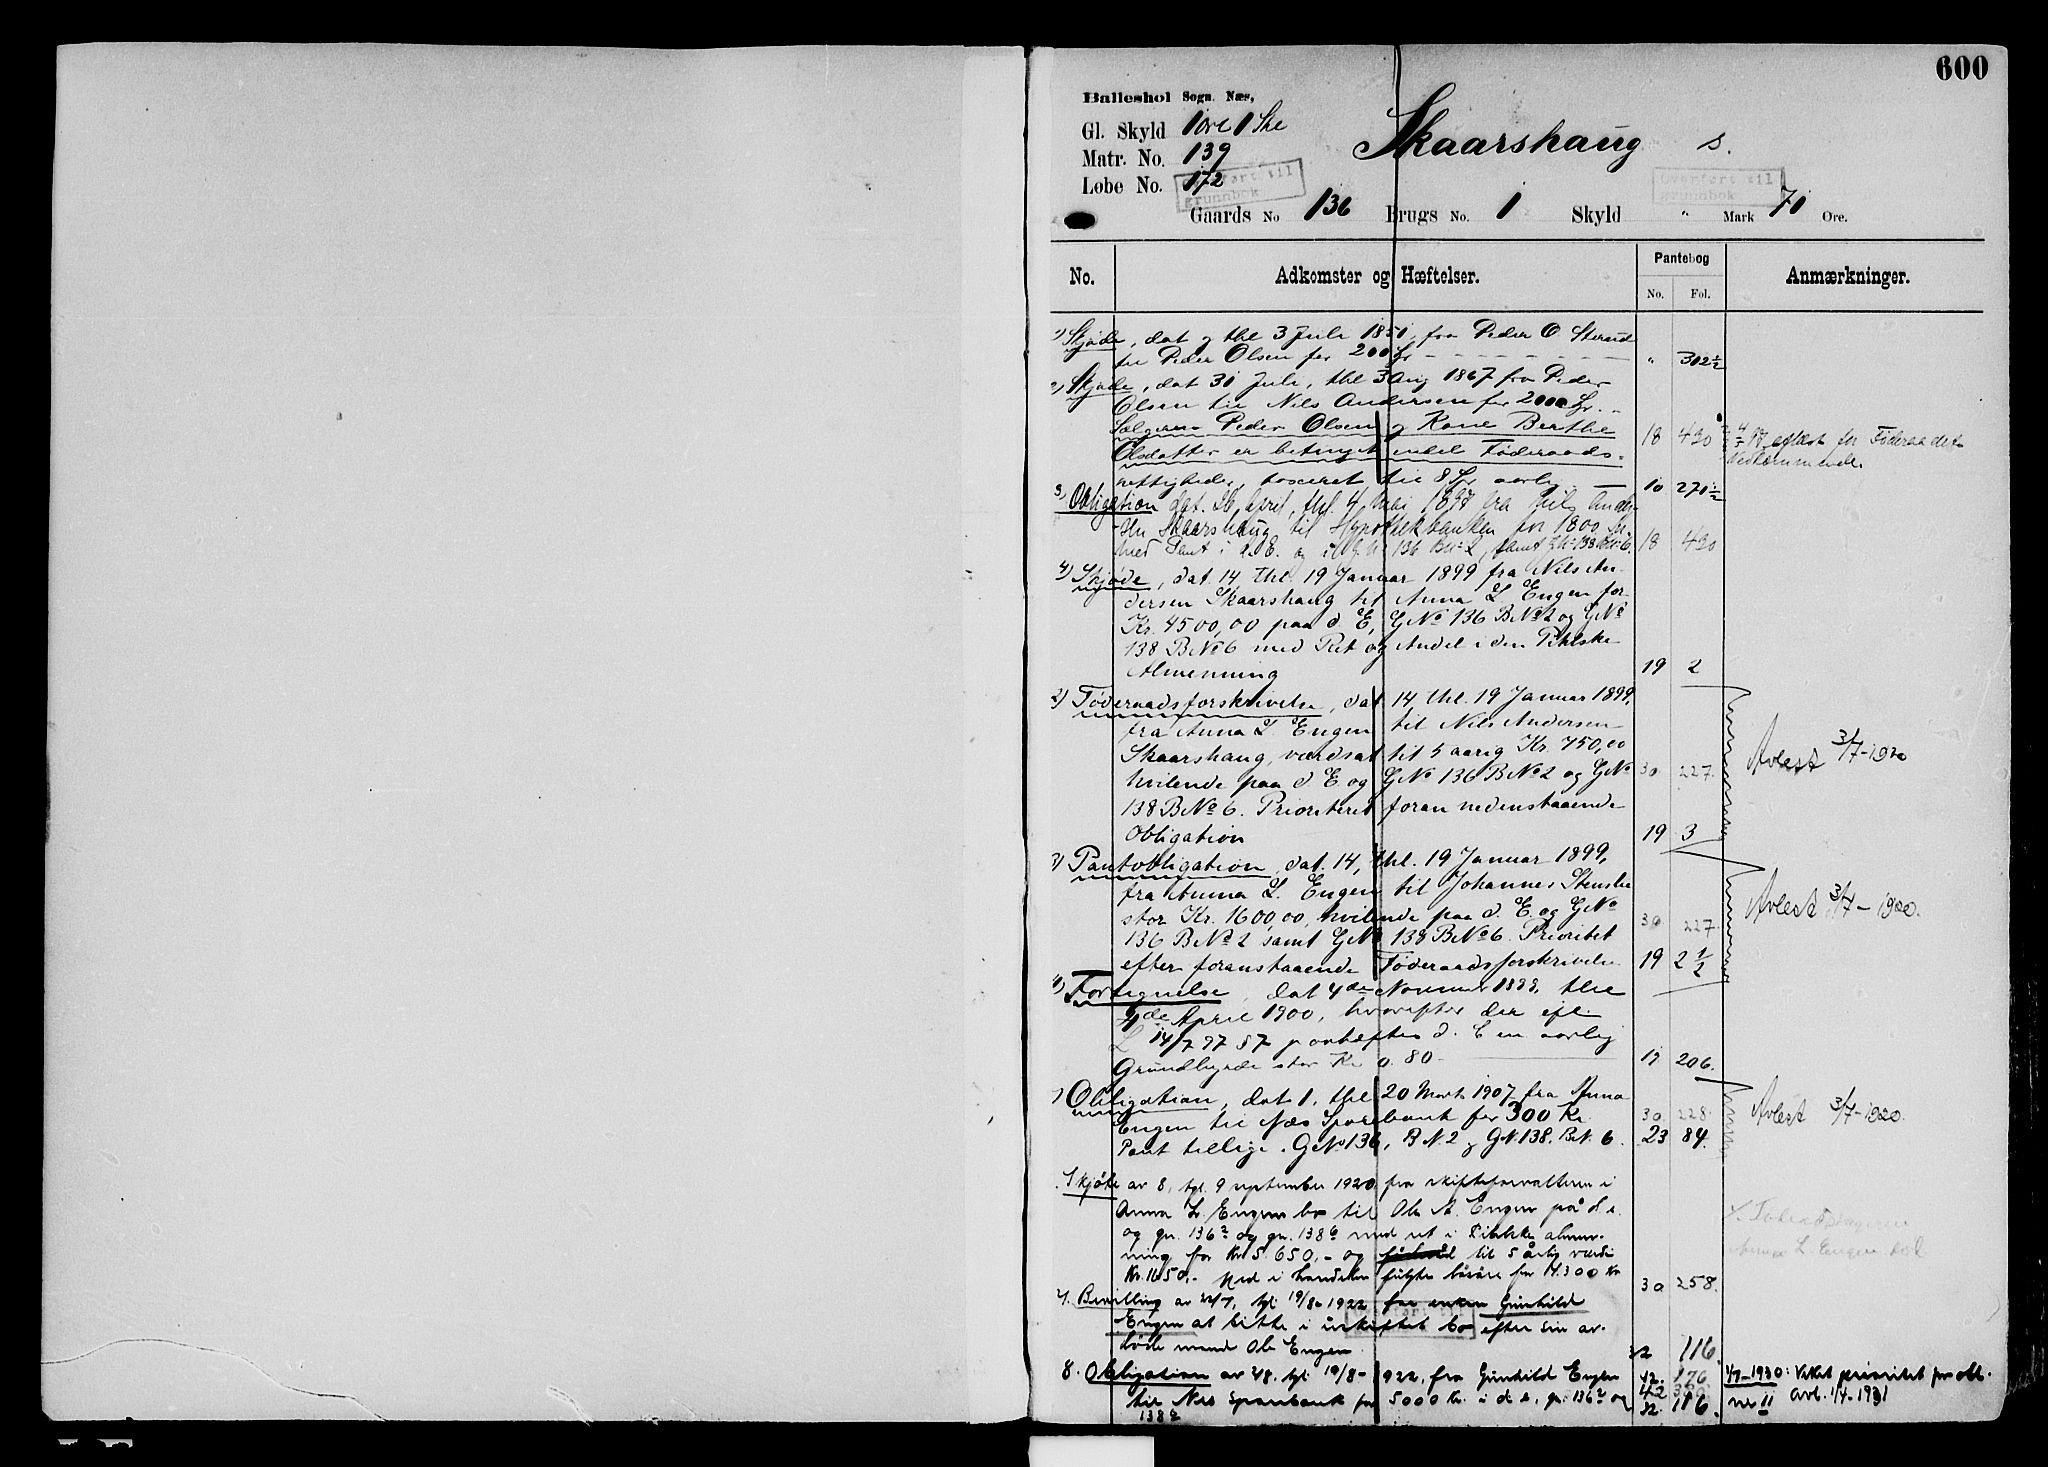 600
Balleshol Sogn. Næs,
Gl. Skyld 1 ore 1 Ske
Skaarshaug s.
Matr. No. 139
Løbe No. 172
Overført til grunnbok
Overført til grunnbok
Gaards No 136 Brugs No. 1 Skyld " Mark 71 Øre.
No. Adkomster og Hæftelser. Pantebog No. Fol. Anmærkninger.
1) Skjøde, dat og thl 3 Juli 1851, fra Peder O. Sterud
til Peder Olsen for 200 Spr " 302 1/2
2) Skjøde, dat 31 Juli, thl 3 Aug 1867 fra Peder
Olsen til Nils Andersen for 2000
Sælgeren Peder Olsen og Kone Berthe
Olsdatter er betinget endel Føderaads- 18 430 aflæst for Føderaadets Vedkommende
rettigheder, taxeret til 8 Spr aarlig 10 271 1/2
3) Obligation dat. 26 April, thl. 4 Mai 1897 fra Nils Ander-
sen Skaarshaug til Hypothekbanken for 1800 Kr
med Pant i d. E. og i G.N. 136 BN. 2, samt GN. 138 BN. 6. 18 430
4) Skjøde, dat. 14, thl. 19 Januar 1899 fra Nils An-
dersen Skaarshaug til Anna L. Engen for
Kr. 4500,00 paa d. E, GNo 136 BNo 2 og GNo
138 BNo 6 med Ret og Andel i den Pihlske
Almenning 19 2
2) Føderaadsforskrivelse, dat 14, thl. 19 Januar 1899,
fra Anna L Engen til Nils Andersen
Skaarshaug, værdsat til 5 aarig Kr. 750,00
hvilende paa d E. og GNo 136 BNo 2 og GNo 30 227. Avlest 3/7-1920
138 BNo 6. Prioriteret foran nedenstaaende
Obligation 19 3
3) Pantobligation, dat. 14, thl. 19 Januar 1899,
fra Anna L. Engen til Johannes Stensli
stor Kr. 1600,00, hvilende paa d. E. og GNo 30 227. Avlest 3/7-1920.
136 BNo 2 samt GNo 138 BNo 6. Prioritet
efter foranstaaende Føderaadsforskrivelse 19 2 1/2
4) Fortegnelse, dat 4de November 1899, thl
4de April 1900, hvorefter der ifl.
L 14/7 97 § 7 paahæftes d. E en aarlig
Grundbyrde stor Kr 0.80 19 206.
Obligation, dat 1, thl 20 Marts 1907 fra Anna
Engen til Næs Sparebank for 300 Kr. 30 228. Avlest 3/7-1920.
Pant tillige. GNo 136, BN. 2 og GN. 138. BN. 6. 23 84.
Skjøte av 8, tgl. 9 september 1920 fra skifteforvalteren i
Anna L. Engens bo til Ole A. Engen på d. e.
og gn. 136 2 og gn. 138 6 med ret i Pihlske almen-
ning for Kr. 5.650,- og føderåd til 5 årlig værdi
Kr. 1650,- Med i handelen fulgte løsøre for 4.300 Kr 30 258.
Anna L. Engen død
7. Bevilling av 22/7, tgl 19/8-1922 for enken Gunhild
Engen at sitte i uskiftet bo efter sin av-
døde mand Ole Engen. 32 116.
Overført til
8. Obligation av 28. tgl 19/8-1922, fra Gunhild Engen 42. 176 1/7-1930: Veket prioritet for obl.
til Nes Sparebank for 5000 Kr. i d e, gn. 136 2 og 32. 116. nr. 11 avl. 1/4-1931
138 6